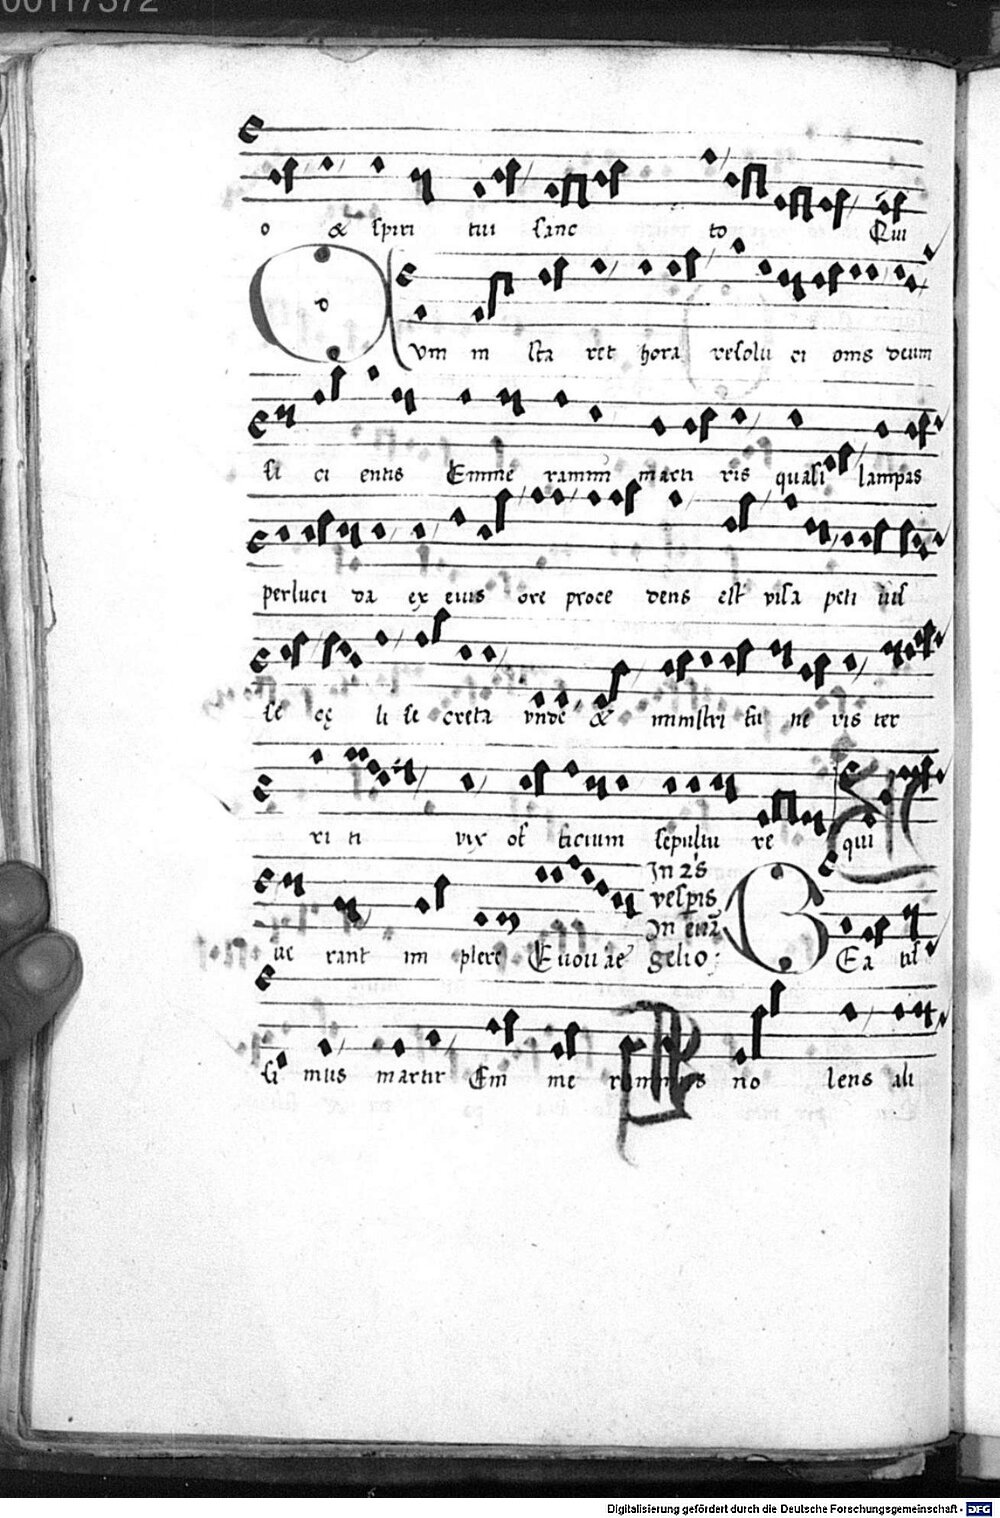 00117372
o & spiri tui sanc to Qui
Dum in sta ret hora resolu ci onis deum
si ci entis Emme rammi marti ris quasi lampas
perluci da ex eius ore proce dens est visa peti iis
se cę li se creta vnde & ministri fu ne ris ter
ri ti vix of ficium sepultu re qui
In 2is
vespis
ue rant im plere Euouae In euā
gelio: BEa tis
si mus martir Em me rammus no lens ali
Digitalisierung gefördert durch die Deutsche Forschungsgemeinschaft - DFG